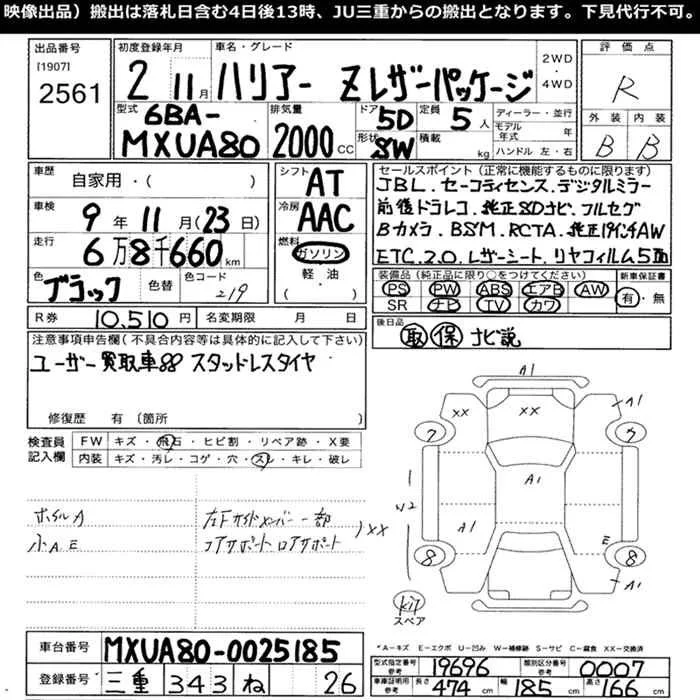 映像出品）搬出は落札日含む4日後13時、JU三重からの搬出となります。下見代行不可。
出品番号
[1907]
2561
初度登録年月
2 11月
車名・グレード
ハリアー Zレザーパッケージ
2WD
・
4WD
評価点
R
外装 内装
B B
型式
6BA-
MXUA80
排気量
2000 CC
ドア 5D
形状 SW
定員 5人
積載 kg
ディーラー・並行
モデル年式 年
ハンドル 左・右
車歴
自家用・( )
車検
9年11月(23日)
走行
6万8千660km
色
ブラック
色替
色コード
219
シフト
AT
冷房
AAC
燃料
ガソリン
軽・油
( )
セールスポイント（正常に機能するものに限ります）
JBL.セーフティセンス.デジタルミラー
前後ドラレコ.純正SDナビ.フルセグ
Bカメラ.BSM.RCTA.純正19インチAW
ETC2.0.レザーシート.リヤフィルム5面
装備品（純正品に限り○をつけてください）
PS PW ABS エアB AW
SR ナビ TV カワ
新車保証書
有・無
R券 10,510円
名変期限 月 日
後日品
取 保 ナビ説
注意事項申告欄（不具合内容等は具体的に記入して下さい）
ユーザー買取車 スタッドレスタイヤ
修復歴 有（箇所
検査員
記入欄
FW キズ・飛石・ヒビ割・リペア跡・X要
内装 キズ・汚レ・コゲ・穴・スレ・キレ・破レ
ホイルA
小A E
左Fサイドメンバー一部
コアサポート ロアサポート
)XX
A1
XX
XX
A1
7
7
A1
W2
A1
E
8
8
A1
kit
スペア
*A－キズ E－エクボ U－凹み W－補修跡 S－サビ C－腐食 XX－交換済
車台番号 MXUA80-0025185
登録番号 三重 343 ね 26
型式指定番号
参考
19696
類別区分番号
参考
0007
車庫証明用
参考
長さ 474cm
幅 185cm
高さ 166cm